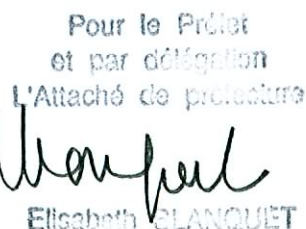 Pour le Préfet
et par délégation
L'Attaché de préfecture
Elisabeth BLANQUET